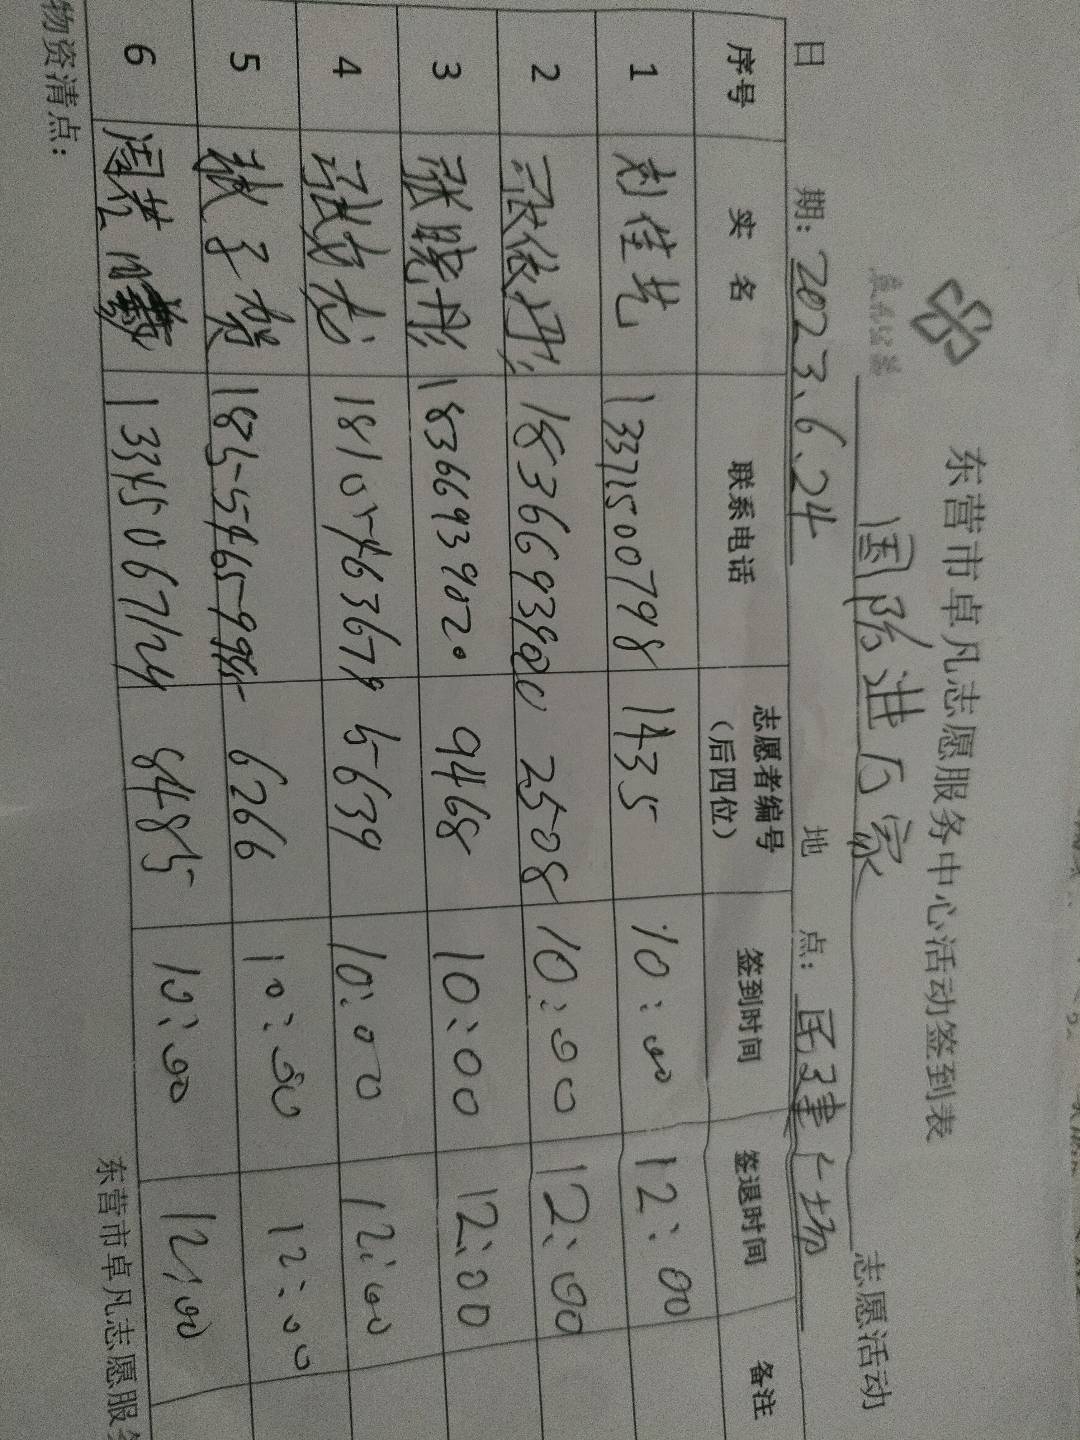 东营市卓凡志愿服务中心活动签到表
国防进万家 志愿活动
日 期: 2023.6.24 地 点: 民建广场
序号 实 名 联系电话 志愿者编号(后四位) 签到时间 签退时间 备注
1 刘佳艺 13371500798 1435 10:00 12:00
2 张依彤 2508 10:00 12:00
3 张晓彤 18366939020 9468 10:00 12:00
4 18105463679 5639 10:00 12:00
5 张子贺 18254659985 6266 12:00
6 13345067124 8485 10:00 12:00
物资清点:
东营市卓凡志愿服务